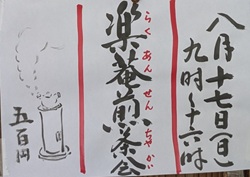 八月十七日(日)
九時～十六時
楽菴煎茶会
らくあんせんちゃかい
五百円